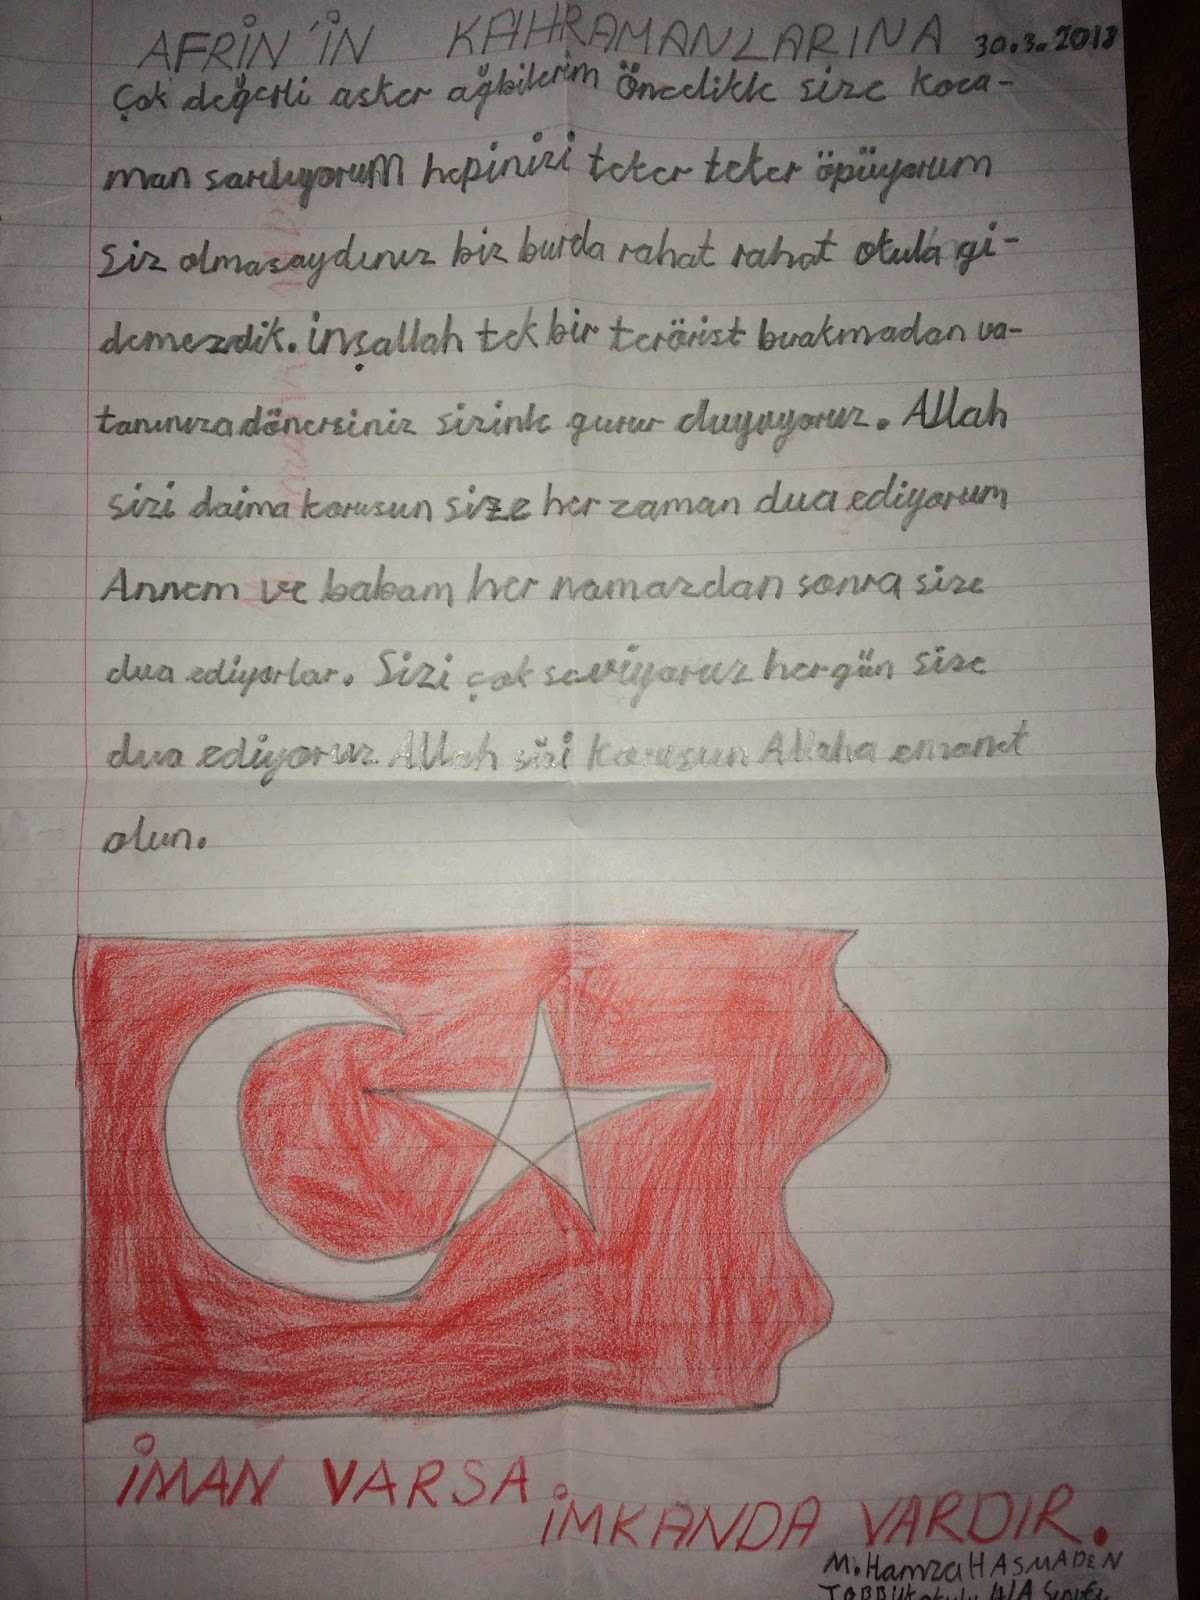 AFRİN'İN KAHRAMANLARINA 30.3.2018
Çok değerli asker ağbilerim Öncelikle size koca-
man sarılıyorum hepinizi teker teker öpüyorum
Siz olmasaydınız biz burda rahat rahat okula gi-
demezdik. inşallah tek bir terörist bırakmadan va-
tanınıza dönersiniz sizinle gurur duyuyoruz. Allah
sizi daima korusun size her zaman dua ediyorum
Annem ve babam her namazdan sonra size
dua ediyorlar. Sizi çok seviyoruz hergün size
dua ediyoruz Allah sizi korusun Allaha emanet
olun.
İMAN VARSA
İMKANDA VARDIR.
M.Hamza HASMADEN
4/A